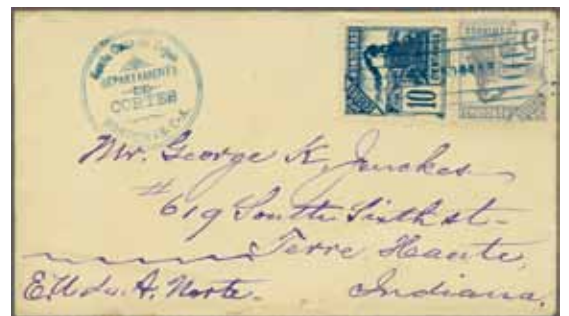 DEPARTAMENTO
DE
CORTES
10
5
Mr. George K. Jenckes
#619 South Sixth st-
Terre Haute,
E.U. du. A. Norte. Indiana.